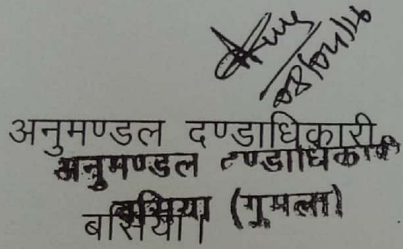 08/04/16
अनुमण्डल दण्डाधिकारी,
अनुमण्डल दण्डाधिकारी
बसिया (गुमला)
बसिया।